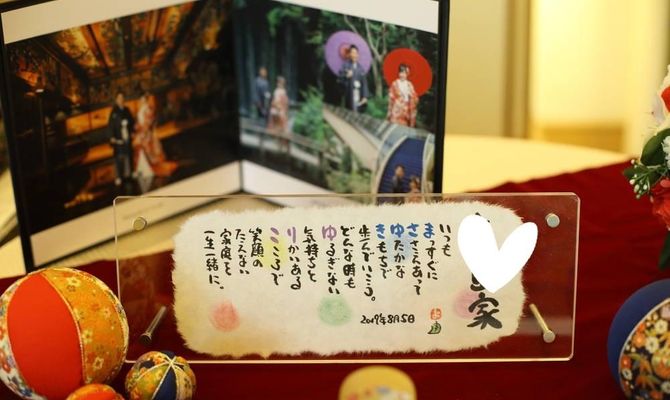 家
いつも
まっすぐに
ささえあって
ゆたかな
きもちで
歩んでいこう。
どんな時も
ゆるぎない
気持ちと
りかいある
こころで
笑顔の
たえない
家庭を
一生一緒に。
2019年8月5日